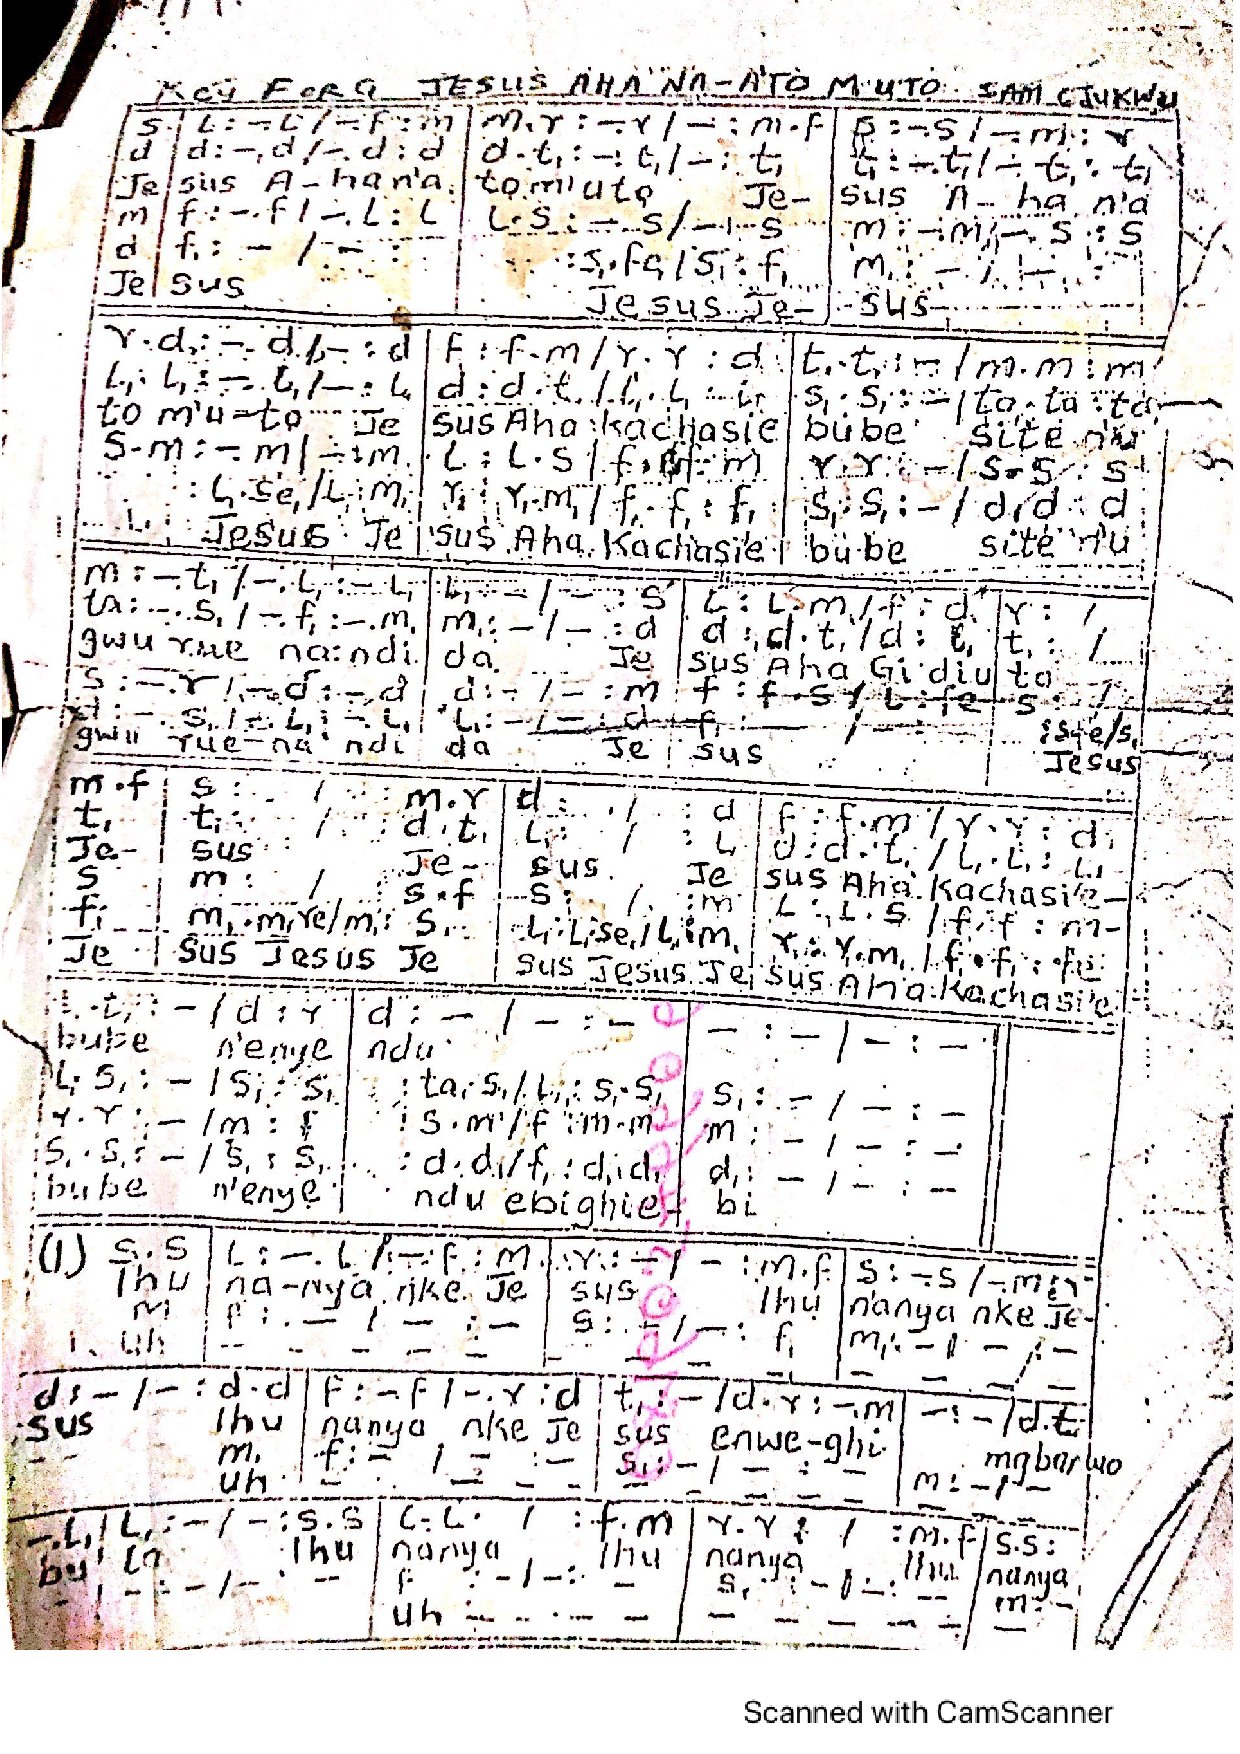 Key For G JESUS AHA NA-ATO M'UTO SAM OJUKWU
s | L : -. L / -. f : m | m.r : -. r / - : m.f | s : -. s / -. m : r
d | d : -. d / -. d : d | d.t, : -. t, / - : t, | t, : -. t, / -. t, : t,
Je | sus A-ha n'a | to m'uto Je- | sus A-ha n'a
m | f : -. f / -. L : L | L.S : -. s / - : s | m : -. m / -. s : s
d | f, : - / - : | : s,.fe, / s, : f, | m, : - / - :
Je | sus | Jesus Je- | sus
r.d : -. d / - : d | f : f.m / r.r : d | t,.t, : - / m.m : m
L,.L, : -. L, / - : L, | d : d.t, / L,.L, : L, | s,.s, : - / ta.ta : ta
to m'u-to Je | sus Aha kachasie | bube site n'u
S.m : -. m / - : m | L : L.S / f.f : m | r.r : - / s.s : s
: L,.se, / L, : m, | r, : r,.m, / f,.f, : f, | s,.s, : - / d.d : d
Jesus Je | sus Aha Kachasie | bube site n'u
m : -. t, / -. L, : -. L, | L, : - / - : s | L : L.m / f : d | r : /
ta : -. s, / -. f, : -. m, | m, : - / - : d | d : d.t, / d : t, | t, : /
gwu rue na ndi | da Je | sus Aha Gi diu | to
s : -. r / -. d : -. d | d : - / - : m | f : f.s / L : fe | s : /
d : -. s, / -. L, : -. L, | L, : - / - : d | f, : / - | : s,.fe, / s,
gwu rue-na ndi | da Je | sus | Jesus
m.f | s : / : m.r | d : / : d | f : f.m / r.r : d
t, | t, : / : d.t, | L, : / : L, | d : d.t, / L,.L, : L,
Je- | sus Je- | sus Je | sus Aha Kachasie-
s | m : / s.f | s : / : m | L : L.s / f.f : m-
f, | m,.m,re / m, : s, | L,.L,se, / L, : m, | r, : r,.m, / f,.f, : f,
Je | sus Jesus Je | sus Jesus Je | sus Aha Kachasie
t,.t, : - / d : r | d : - / - : - | - : - / - : -
bube n'enye | ndu
L,.s, : - / s, : s, | : ta,.s, / L, : s,.s, | s, : - / - : -
r.r : - / m : f | : s.m / f : m.m | m : - / - : -
s,.s, : - / s, : s, | : d.d / f, : d,.d, | d, : - / - : -
bube n'enye | ndu ebighie- | bi
(1) s.s | L : -. L / -. f : m | r : - / - : m.f | s : -. s / -. m : r
Ihu | na-nya nke Je | sus Ihu | nanya nke Je-
m | f : - / - : - | s : - / - : f, | m, : - / - : -
uh
d : - / - : d.d | f : -. f / -. r : d | t, : - / d.r : -. m | - : - / d.t,
sus Ihu | nanya nke Je | sus enwe-ghi | mgbanwo
m, | f : - / - : - | s, : - / - : - | m : - / -
uh
-. L, | L, : - / - : s.s | L.L : / : f.m | r.r : / : m.f | s.s :
bu la Ihu | nanya Ihu | nanya Ihu | nanya
- : - / - - | f : - / - : - | s, : - / - : - | m : -
uh
Scanned with CamScanner